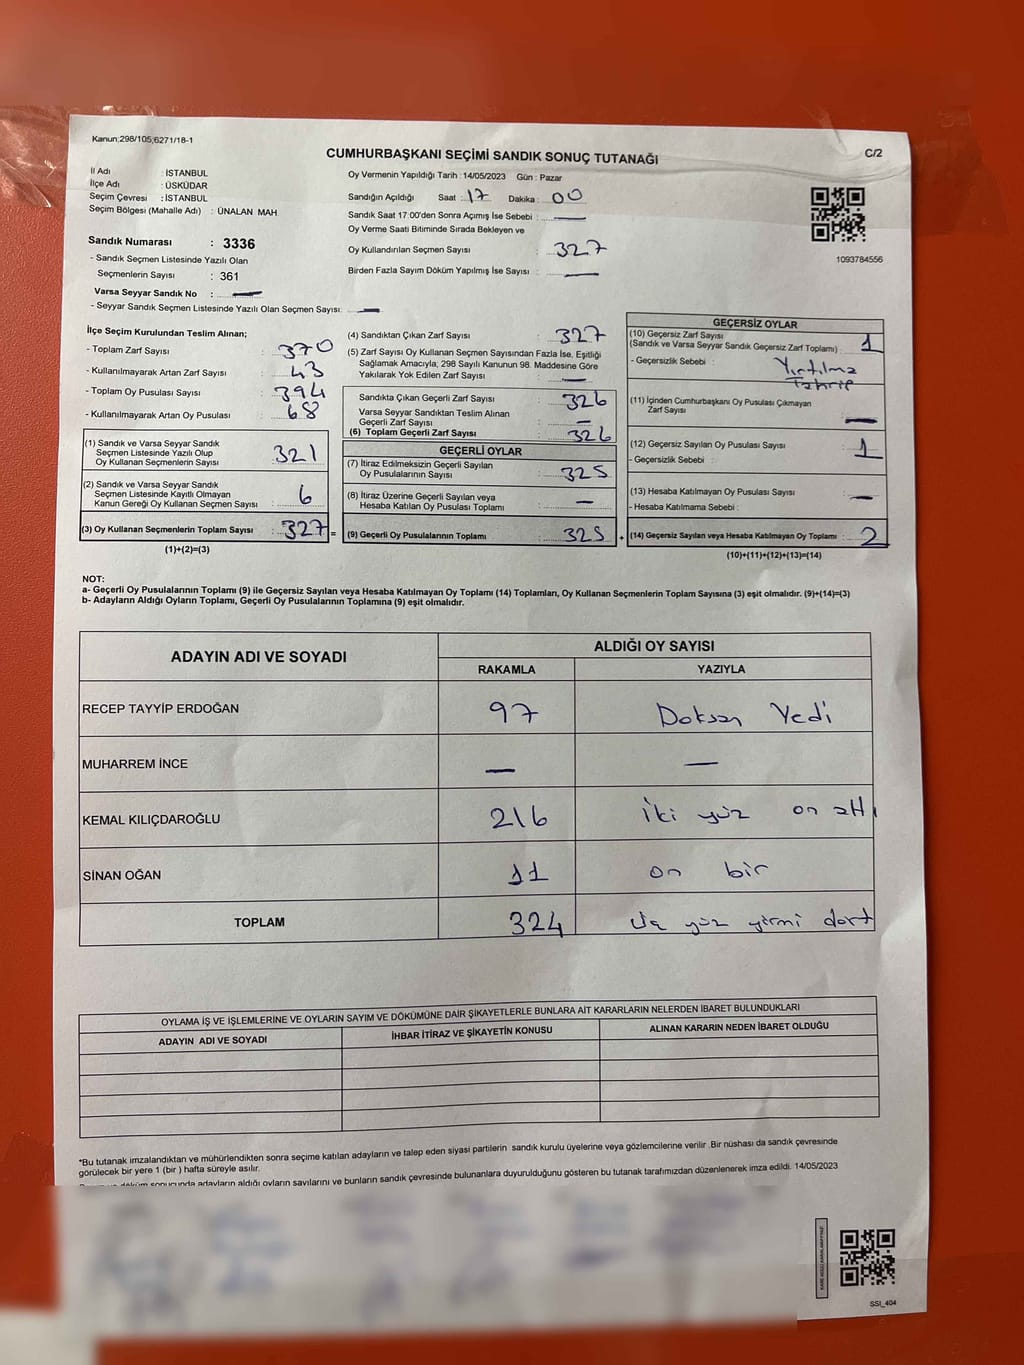 Kanun;298/105;6271/18-1
C/2
CUMHURBAŞKANI SEÇİMİ SANDIK SONUÇ TUTANAĞI
İl Adı : İSTANBUL
İlçe Adı : ÜSKÜDAR
Seçim Çevresi : İSTANBUL
Seçim Bölgesi (Mahalle Adı) : ÜNALAN MAH
Sandık Numarası : 3336
- Sandık Seçmen Listesinde Yazılı Olan
Seçmenlerin Sayısı : 361
Varsa Seyyar Sandık No : —
- Seyyar Sandık Seçmen Listesinde Yazılı Olan Seçmen Sayısı: —
Oy Vermenin Yapıldığı Tarih : 14/05/2023 Gün : Pazar
Sandığın Açıldığı Saat : 17 Dakika : 00
Sandık Saat 17:00'den Sonra Açımış İse Sebebi : —
Oy Verme Saati Bitiminde Sırada Bekleyen ve
Oy Kullandırılan Seçmen Sayısı : 327
Birden Fazla Sayım Döküm Yapılmış İse Sayısı : —
1093784556
İlçe Seçim Kurulundan Teslim Alınan;
- Toplam Zarf Sayısı : 370
- Kullanılmayarak Artan Zarf Sayısı : 43
- Toplam Oy Pusulası Sayısı : 394
- Kullanılmayarak Artan Oy Pusulası : 68
(1) Sandık ve Varsa Seyyar Sandık
Seçmen Listesinde Yazılı Olup
Oy Kullanan Seçmenlerin Sayısı : 321
(2) Sandık ve Varsa Seyyar Sandık
Seçmen Listesinde Kayıtlı Olmayan
Kanun Gereği Oy Kullanan Seçmen Sayısı : 6
(3) Oy Kullanan Seçmenlerin Toplam Sayısı : 327 =
(1)+(2)=(3)
(4) Sandıktan Çıkan Zarf Sayısı : 327
(5) Zarf Sayısı Oy Kullanan Seçmen Sayısından Fazla İse, Eşitliği
Sağlamak Amacıyla, 298 Sayılı Kanunun 98. Maddesine Göre
Yakılarak Yok Edilen Zarf Sayısı : —
Sandıkta Çıkan Geçerli Zarf Sayısı : 326
Varsa Seyyar Sandıktan Teslim Alınan
Geçerli Zarf Sayısı : —
(6) Toplam Geçerli Zarf Sayısı : 326
GEÇERLİ OYLAR
(7) İtiraz Edilmeksizin Geçerli Sayılan
Oy Pusulalarının Sayısı : 325
(8) İtiraz Üzerine Geçerli Sayılan veya
Hesaba Katılan Oy Pusulası Toplamı : —
(9) Geçerli Oy Pusulalarının Toplamı : 325 +
GEÇERSİZ OYLAR
(10) Geçersiz Zarf Sayısı
(Sandık ve Varsa Seyyar Sandık Geçersiz Zarf Toplamı) : 1
- Geçersizlik Sebebi : Yırtılma
Tahrip
(11) İçinden Cumhurbaşkanı Oy Pusulası Çıkmayan
Zarf Sayısı : —
(12) Geçersiz Sayılan Oy Pusulası Sayısı : 1
- Geçersizlik Sebebi :
(13) Hesaba Katılmayan Oy Pusulası Sayısı : —
- Hesaba Katılmama Sebebi :
(14) Geçersiz Sayılan veya Hesaba Katılmayan Oy Toplamı : 2
(10)+(11)+(12)+(13)=(14)
NOT:
a- Geçerli Oy Pusulalarının Toplamı (9) ile Geçersiz Sayılan veya Hesaba Katılmayan Oy Toplamı (14) Toplamları, Oy Kullanan Seçmenlerin Toplam Sayısına (3) eşit olmalıdır. (9)+(14)=(3)
b- Adayların Aldığı Oyların Toplamı, Geçerli Oy Pusulalarının Toplamına (9) eşit olmalıdır.
ADAYIN ADI VE SOYADI ALDIĞI OY SAYISI
RAKAMLA YAZIYLA
RECEP TAYYİP ERDOĞAN 97 Doksan Yedi
MUHARREM İNCE — —
KEMAL KILIÇDAROĞLU 216 iki yüz on altı
SİNAN OĞAN 11 on bir
TOPLAM 324 üç yüz yirmi dört
OYLAMA İŞ VE İŞLEMLERİNE VE OYLARIN SAYIM VE DÖKÜMÜNE DAİR ŞİKAYETLERLE BUNLARA AİT KARARLARIN NELERDEN İBARET BULUNDUKLARI
ADAYIN ADI VE SOYADI İHBAR İTİRAZ VE ŞİKAYETİN KONUSU ALINAN KARARIN NEDEN İBARET OLDUĞU
*Bu tutanak imzalandıktan ve mühürlendikten sonra seçime katılan adayların ve talep eden siyasi partilerin sandık kurulu üyelerine veya gözlemcilerine verilir .Bir nüshası da sandık çevresinde
görülecek bir yere 1 (bir ) hafta süreyle asılır.
döküm sonucunda adayların aldığı oyların sayılarını ve bunların sandık çevresinde bulunanlara duyurulduğunu gösteren bu tutanak tarafımızdan düzenlenerek imza edildi. 14/05/2023
SSI_404